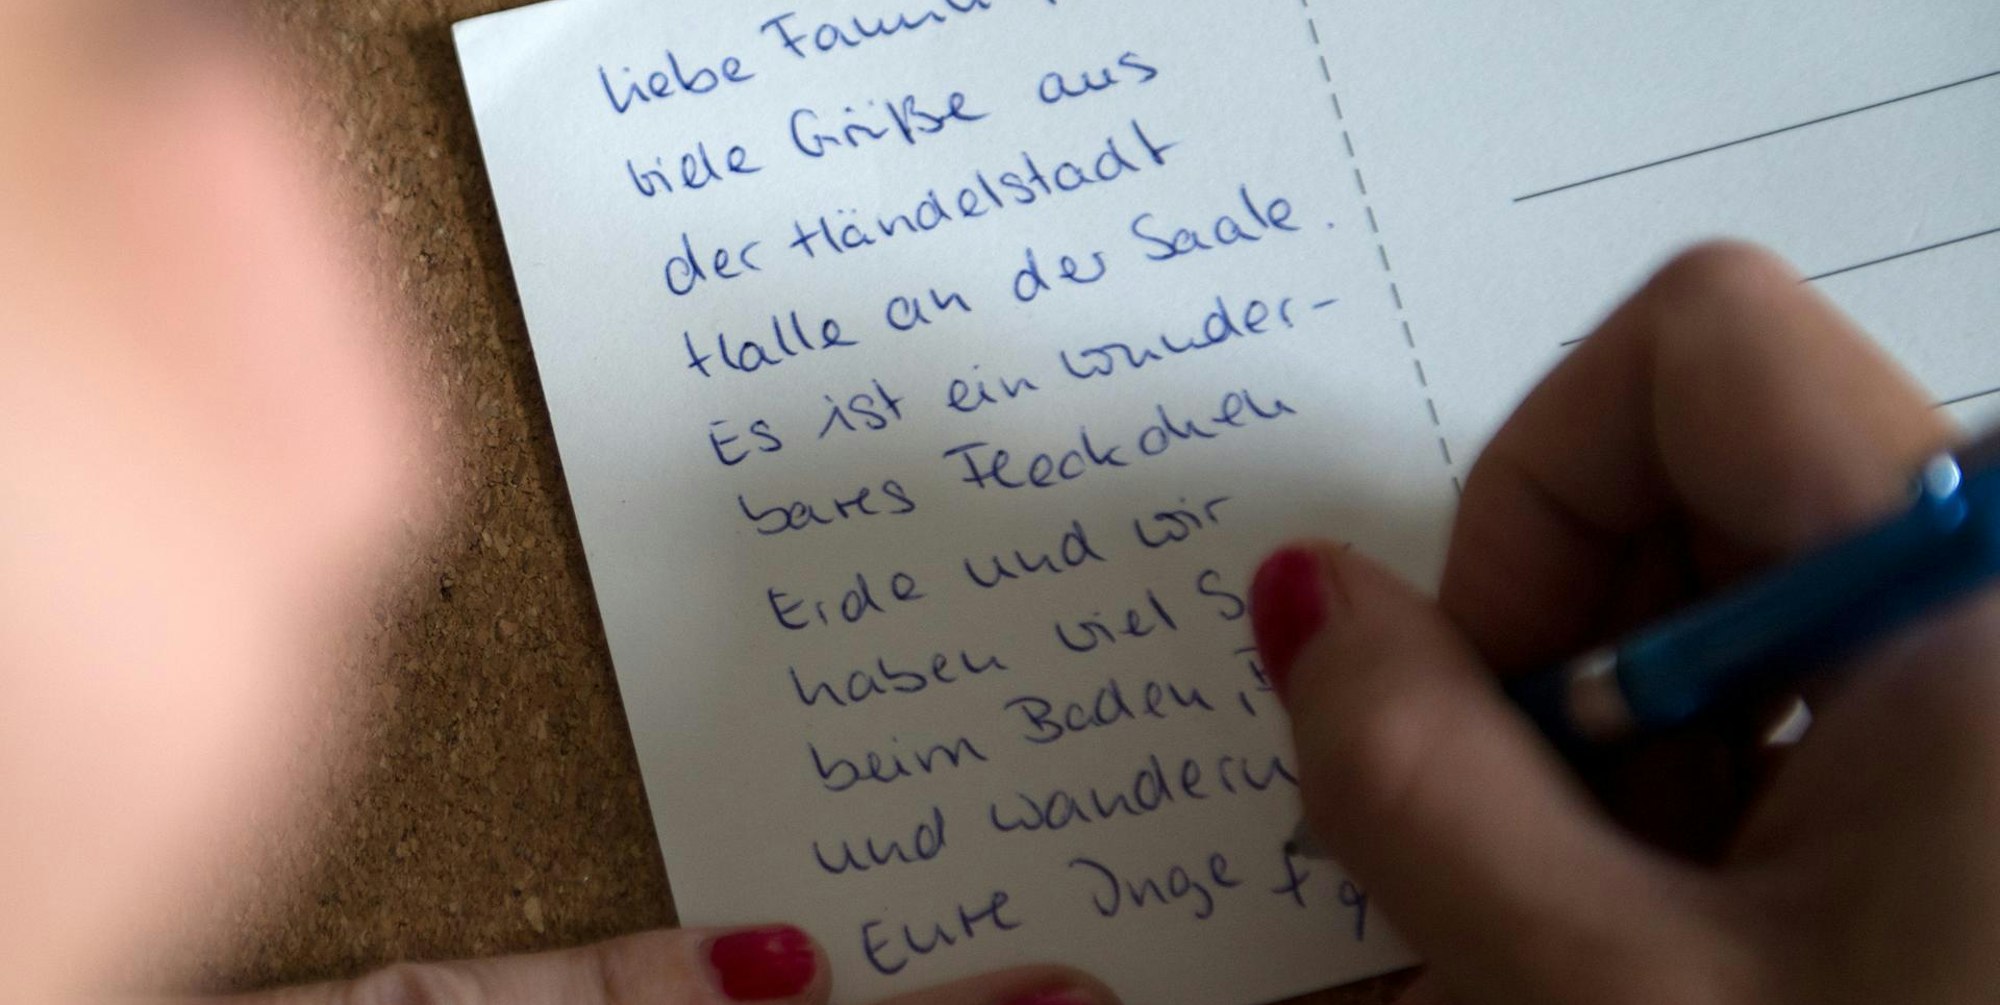 liebe
viele Grüße aus
der Händelstadt
Halle an der Saale.
Es ist ein wunder-
bares Fleckchen
Erde und wir
haben viel
beim Baden,
und wandern
Eure Inge +